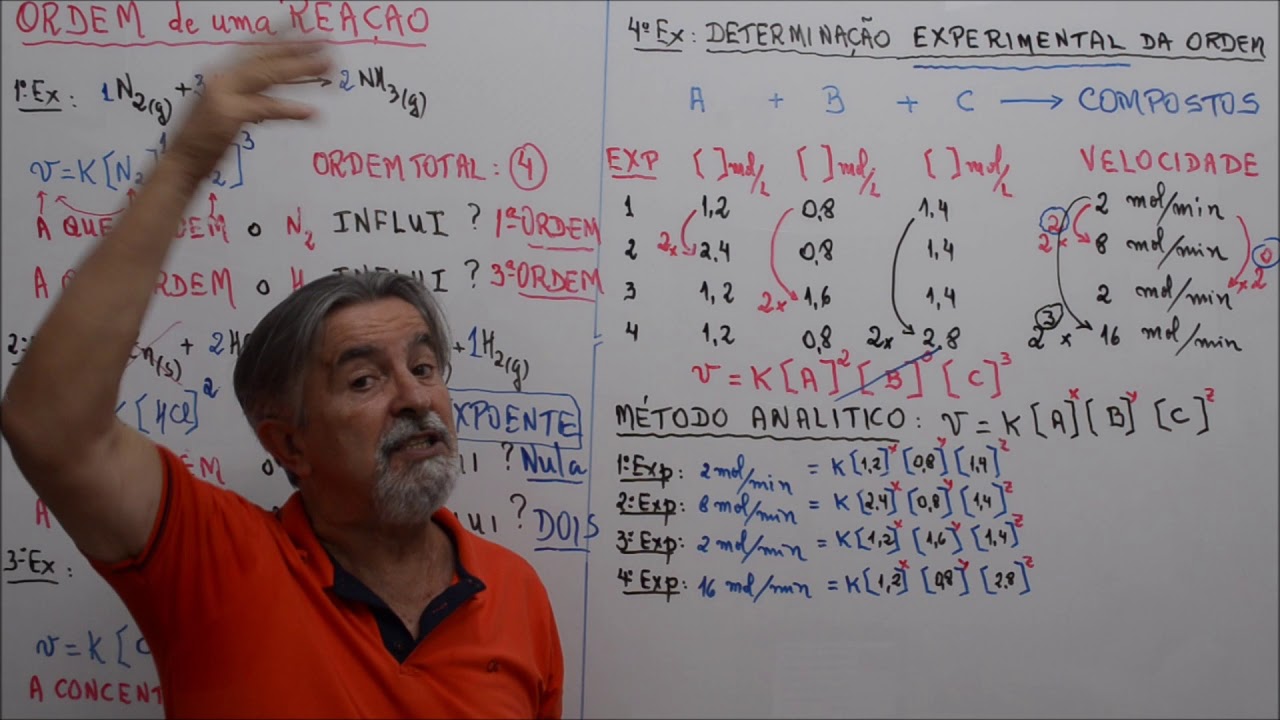 ORDEM de uma REAÇÃO
1º Ex: 1N2(g) + 3 → 2NH3(g)
v=K[N2]¹ 2]³
ORDEM TOTAL: 4
A QUE DEM o N2 INFLUI ? 1ª ORDEM
A ORDEM o H INFLUI ? 3ª ORDEM
2: n(s) + 2H + 1H2(g)
K[HCl]²
XPOENTE
EM o ? Nula
A UI ? DOIS
3º Ex:
v=K[C
A CONCENT
4º Ex: DETERMINAÇÃO EXPERIMENTAL DA ORDEM
A + B + C → COMPOSTOS
EXP [ ]mol/L [ ]mol/L [ ]mol/L VELOCIDADE
1 1,2 0,8 1,4 2 mol/min
2 2x 2,4 0,8 1,4 2² x 8 mol/min 0
3 1,2 2x 1,6 1,4 2 mol/min x 2
4 1,2 0,8 2x 2,8 2³ x 16 mol/min
v = K[A]² [B]⁰ [C]³
MÉTODO ANALITICO: v = K[A]ˣ[B]ʸ[C]ᶻ
1ª Exp: 2 mol/min = K[1,2]ˣ[0,8]ʸ[1,4]ᶻ
2ª Exp: 8 mol/min = K[2,4]ˣ[0,8]ʸ[1,4]ᶻ
3ª Exp: 2 mol/min = K[1,2]ˣ[1,6]ʸ[1,4]ᶻ
4ª Exp: 16 mol/min = K[1,2]ˣ[0,8]ʸ[2,8]ᶻ